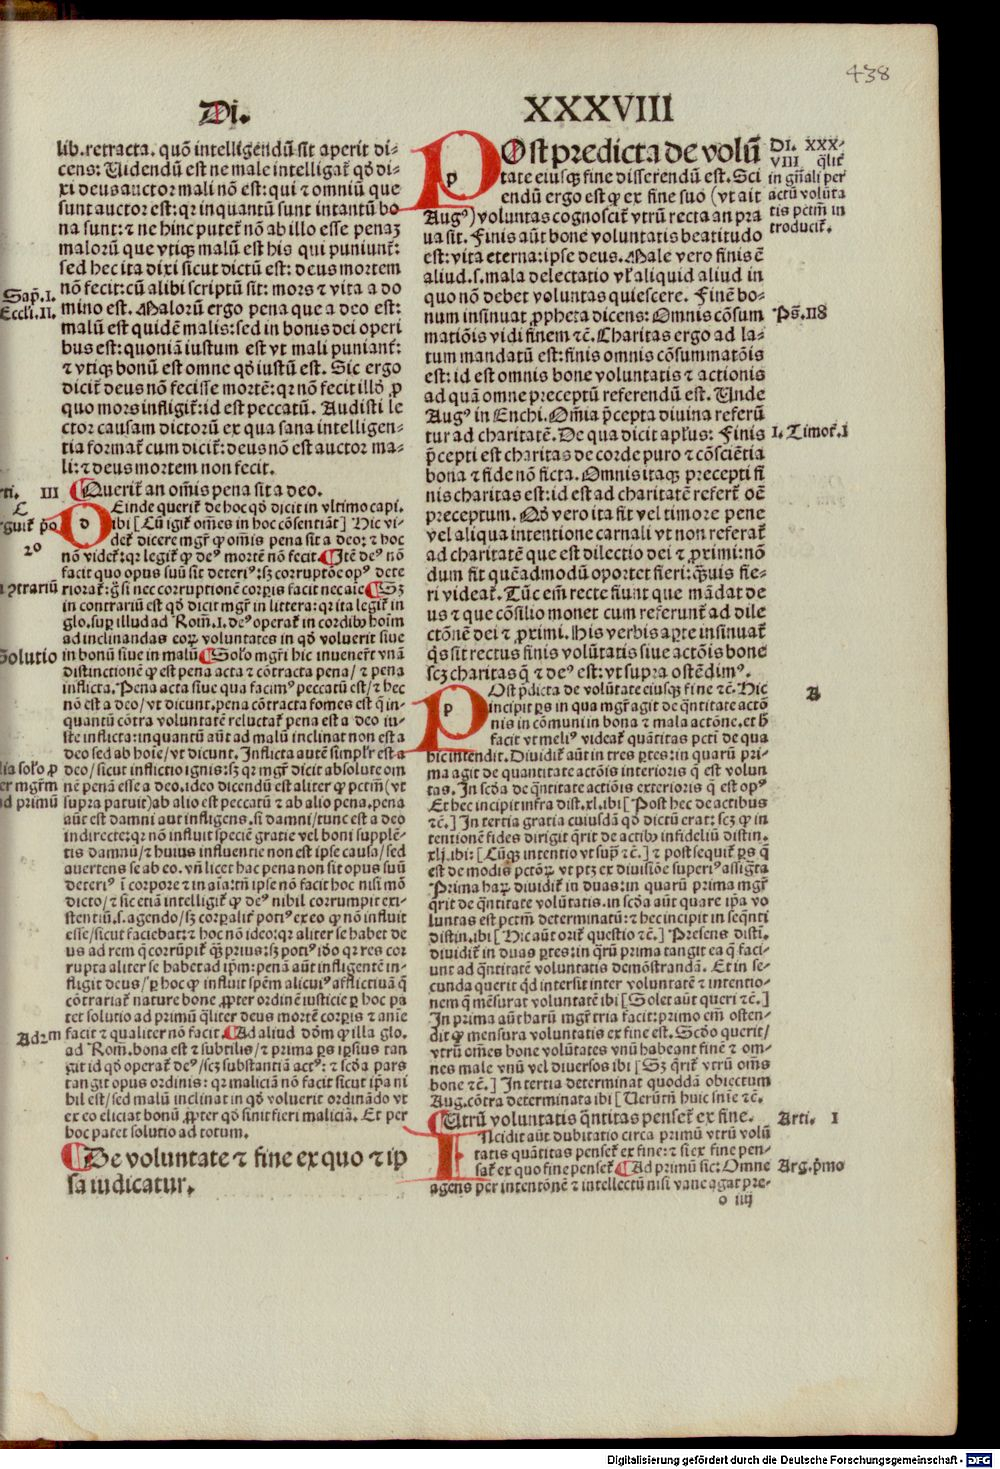 438
Di.
XXXVIII
lib.retracta. quõ intelligendũ sit aperit di-
cens: Uidendũ est ne male intelligaẗ qð di-
xi deus auctor mali nõ est: qui ⁊ omniũ que
sunt auctor est: qꝛ inquantũ sunt intantũ bo
na sunt: ⁊ ne hinc puteť nõ ab illo esse penaꝫ
malorũ que vtiqꝫ malũ est his qui puniunť:
sed hec ita dixi sicut dictũ est: deus mortem
nõ fecit: cũ alibi scriptũ sit: mors ⁊ vita a do
mino est. Malorũ ergo pena que a deo est:
malũ est quidẽ malis: sed in bonis dei operi
bus est: quoniã iustum est vt mali puniant̃:
⁊ vtiqꝫ bonũ est omne qð iustũ est. Sic ergo
diciť deus nõ fecisse mortẽ: qꝛ nõ fecit illð ꝓ
quo mors infligiť: id est peccatũ. Audisti le
ctor causam dictorũ ex qua sana intelligen-
tia formať cum diciť: deus nõ est auctor ma-
li: ⁊ deus mortem non fecit.
Sap̃.I.
Eccli.II.
III
¶Queriť an om̃is pena sit a deo.
Deinde queriť de hoc qð dicit in vltimo capi.
ibi [Cũ igiť om̃es in hoc cõsentiãt] Hic vi-
deť dicere mgř ꝙ om̃is pena sit a deo: ⁊ hoc
nõ videť: qꝛ legiť ꝙ deꝰ mortẽ nõ fecit. ¶Itẽ deꝰ nõ
facit quo opus suũ sit deteriꝰ: sꝫ corruptõe opꝰ dete
riorať: g̊ si nec corruptionẽ corꝑis facit nec aĩe ¶Sꝫ
in contrariũ est qð dicit mgř in littera: qꝛ ita legiť in
glo. suꝑ illud ad Rom̃.I. deꝰ operať in cordibꝰ hoĩm
ad inclinandas eoꝝ voluntates in qð voluerit siue
in bonũ siue in malũ ¶Solo mgři hic inueneřt vnã
distinctionẽ ꝙ est pena acta ⁊ cõtracta pena/ ⁊ pena
inflicta. Pena acta siue qua facimꝰ peccatũ est/ ⁊ hec
nõ est a deo/ vt dicunt. pena cõtracta fomes est q̃ in-
quantũ cõtra voluntatẽ reluctať pena est a deo iu-
ste inflicta: inquantũ aũt ad malũ inclinat non est a
deo sed ab hoie/ vt dicunt. Inflicta autẽ simplr̃ est a
deo/ sicut inflictio ignis: sꝫ qꝛ mgř dicit absolute om
nẽ penã esse a deo. ideo dicendũ est aliter ꝙ pctm̃ (vt
supra patuit) ab alio est peccatũ ⁊ ab alio pena. pena
aũt est damni aut infligens. si damni/ tunc est a deo
indirecte: qꝛ nõ influit speciẽ gratie vel boni supplẽ-
tis damnũ/ ⁊ huius influentie non est ipse causa/ sed
auertens se ab eo. vñ licet hac pena non sit opus suũ
deteriꝰ ĩ corpore ⁊ in aĩa: tñ ipse nõ facit hoc nisi mõ
dicto/ ⁊ sic etiã intelligiť ꝙ deꝰ nihil corrumpit exi-
stentiũ. s. agendo/ sꝫ corꝑaliť potiꝰ ex eo ꝙ nõ influit
esse/ sicut faciebat: ⁊ hoc nõ ideo: qꝛ aliter se habet de
us ad rem q̃ corrũpiť qꝫ̃ prius: sꝫ potiꝰ iðo qꝛ res cor
rupta aliter se habet ad ip̃m: penã aũt infligentẽ in-
fligit deus/ ꝑ hoc ꝙ influit spẽm alicuiꝰ afflictiuã q̃
cõtrariať nature bone ꝓpter ordinẽ iusticie ꝑ hoc pa
tet solutio ad primũ qřliter deus mortẽ corꝑis ⁊ anie
facit ⁊ qualiter nõ facit. ¶Ad aliud dõm ꝙ illa glo.
ad Rom̃. bona est ⁊ subtilis/ ⁊ prima ꝑs ipsius tan
git id qð operať deꝰ/ sꝫ substantiã actꝰ: ⁊ scðã pars
tangit opus ordinis: qꝛ maliciã nõ facit sicut ip̃a ni
hil est/ sed malũ inclinat in qð voluerit ordinãdo vt
ex eo eliciat bonũ ꝓpter qð sinit fieri maliciã. Et per
hoc patet solutio ad totum.
Solutio
Ad 2m
¶De voluntate ⁊ fine ex quo ⁊ ip
sa iudicatur.
POst predicta de volũ
tate eiusqꝫ fine disserendũ est. Sci
endũ ergo est ꝙ ex fine suo (vt ait
Augꝰ) voluntas cognosciť vtrũ recta an pra
ua sit. Finis aũt bone voluntatis beatitudo
est: vita eterna: ipse deus. Male vero finis ẽ
aliud. s. mala delectatio vľ aliquid aliud in
quo nõ debet voluntas quiescere. Finẽ bo-
num insinuat ꝓpheta dicens: Omnis cõsum
matiõis vidi finem ⁊c̃. Charitas ergo ad la-
tum mandatũ est: finis omnis cõsummatõis
est: id est omnis bone voluntatis ⁊ actionis
ad quã omne preceptũ referendũ est. Unde
Augꝰ in Enchi. Om̃ia p̃cepta diuina referũ
tur ad charitatẽ. De qua dicit apľus: Finis
p̃cepti est charitas de corde puro ⁊ cõsciẽtia
bona ⁊ fide nõ ficta. Omnis itaqꝫ precepti fi
nis charitas est: id est ad charitatẽ referť oẽ
preceptum. Qð vero ita fit vel timore pene
vel aliqua intentione carnali vt non referať
ad charitatẽ que est dilectio dei ⁊ ꝓximi: nõ
dum fit quẽadmodũ oportet fieri: qꝫ̃uis fie-
ri videať. Tũc em̃ recte fiunt que mãdat de
us ⁊ que cõsilio monet cum referunť ad dile
ctõnẽ dei ⁊ ꝓximi. His verbis aꝑte insinuať
q̃s sit rectus finis volũtatis siue actõis bone
scꝫ charitas q̃ ⁊ deꝰ est: vt supra ostẽdimꝰ.
DI. XXX-
VIII q̃liť
in gñali per
actũ volũta
tis pctm̃ in
troduciť.
Ps̃.118
I. Timoť.I
POst p̃dicta de volũtate eiusqꝫ fine ⁊c̃. Hic
incipit ꝑs in qua mgř agit de q̃ntitate actõ
nis in cõmuni in bona ⁊ mala actõne. et ħ
facit vt meliꝰ videať quãtitas pcti de qua
hic intendit. Diuidiť aũt in tres ꝑtes: in quarũ pri-
ma agit de quantitate actõis interioris q̃ est volun
tas. In scða de q̃ntitate actiõis exterioris q̃ est opꝰ
Et hec incipit infra dist. xl. ibi [Post hec de actibus
⁊c̃.] In tertia gratia cuiusdã qð dictũ erat: scꝫ ꝙ in
tentionẽ fides dirigit q̃rit de actibꝰ infideliũ distin.
xlj. ibi: [Cũqꝫ intentio vt sup̃ ⁊c̃.] ⁊ post sequiť ꝑs q̃
est de modis pctoꝝ vt ptꝫ ex diuisiõe superiꝰ assigta
Prima haꝝ diuidiť in duas: in quarũ prima mgř
q̃rit de q̃ntitate volũtatis. in scða aũt quare ip̃a vo
luntas est pctm̃ determinatũ: ⁊ hec incipit in seq̃nti
distin. ibi [Hic aũt oriť questio ⁊c̃.] Presens disti.
diuidiť in duas ꝑtes: in q̃rũ prima tangit ea q̃ faci-
unt ad q̃ntitatẽ voluntatis demõstrandã. Et in se-
cunda querit qð intersit inter voluntatẽ ⁊ intentio-
nem q̃ mẽsurat voluntatẽ ibi [Solet aũt queri ⁊c̃.]
In prima aũt harũ mgř tria facit: primo em̃ osten-
dit ꝙ mensura voluntatis ex fine est. Scðo querit/
vtrũ om̃es bone volũtates vnũ habeant finẽ ⁊ om-
nes male vnũ vel diuersos ibi [Sꝫ q̃riť vtrũ om̃s
bone ⁊c̃.] In tertia determinat quoddã obiectum
Aug. cõtra determinata ibi [Uerũtñ huic snĩe ⁊c̃.
¶Utrũ voluntatis q̃ntitas penseť ex fine.
INcidit aũt dubitatio circa primũ vtrũ volũ
tatis quãtitas penseť ex fine: ⁊ si ex fine pen-
sať ex quo fine penseť. ¶Ad primũ sic: Omne
agens per intentõnẽ ⁊ intellectũ nisi vane agat pre-
Arti. I
Arg. p̃mo
o iiij
Digitalisierung gefördert durch die Deutsche Forschungsgemeinschaft - DFG